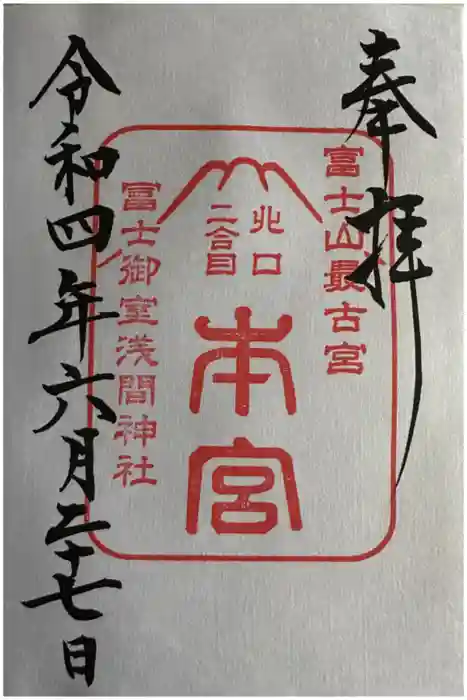 奉拝
冨士山最古宮
北口
二合目
本宮
冨士御室浅間神社
令和四年六月二十七日